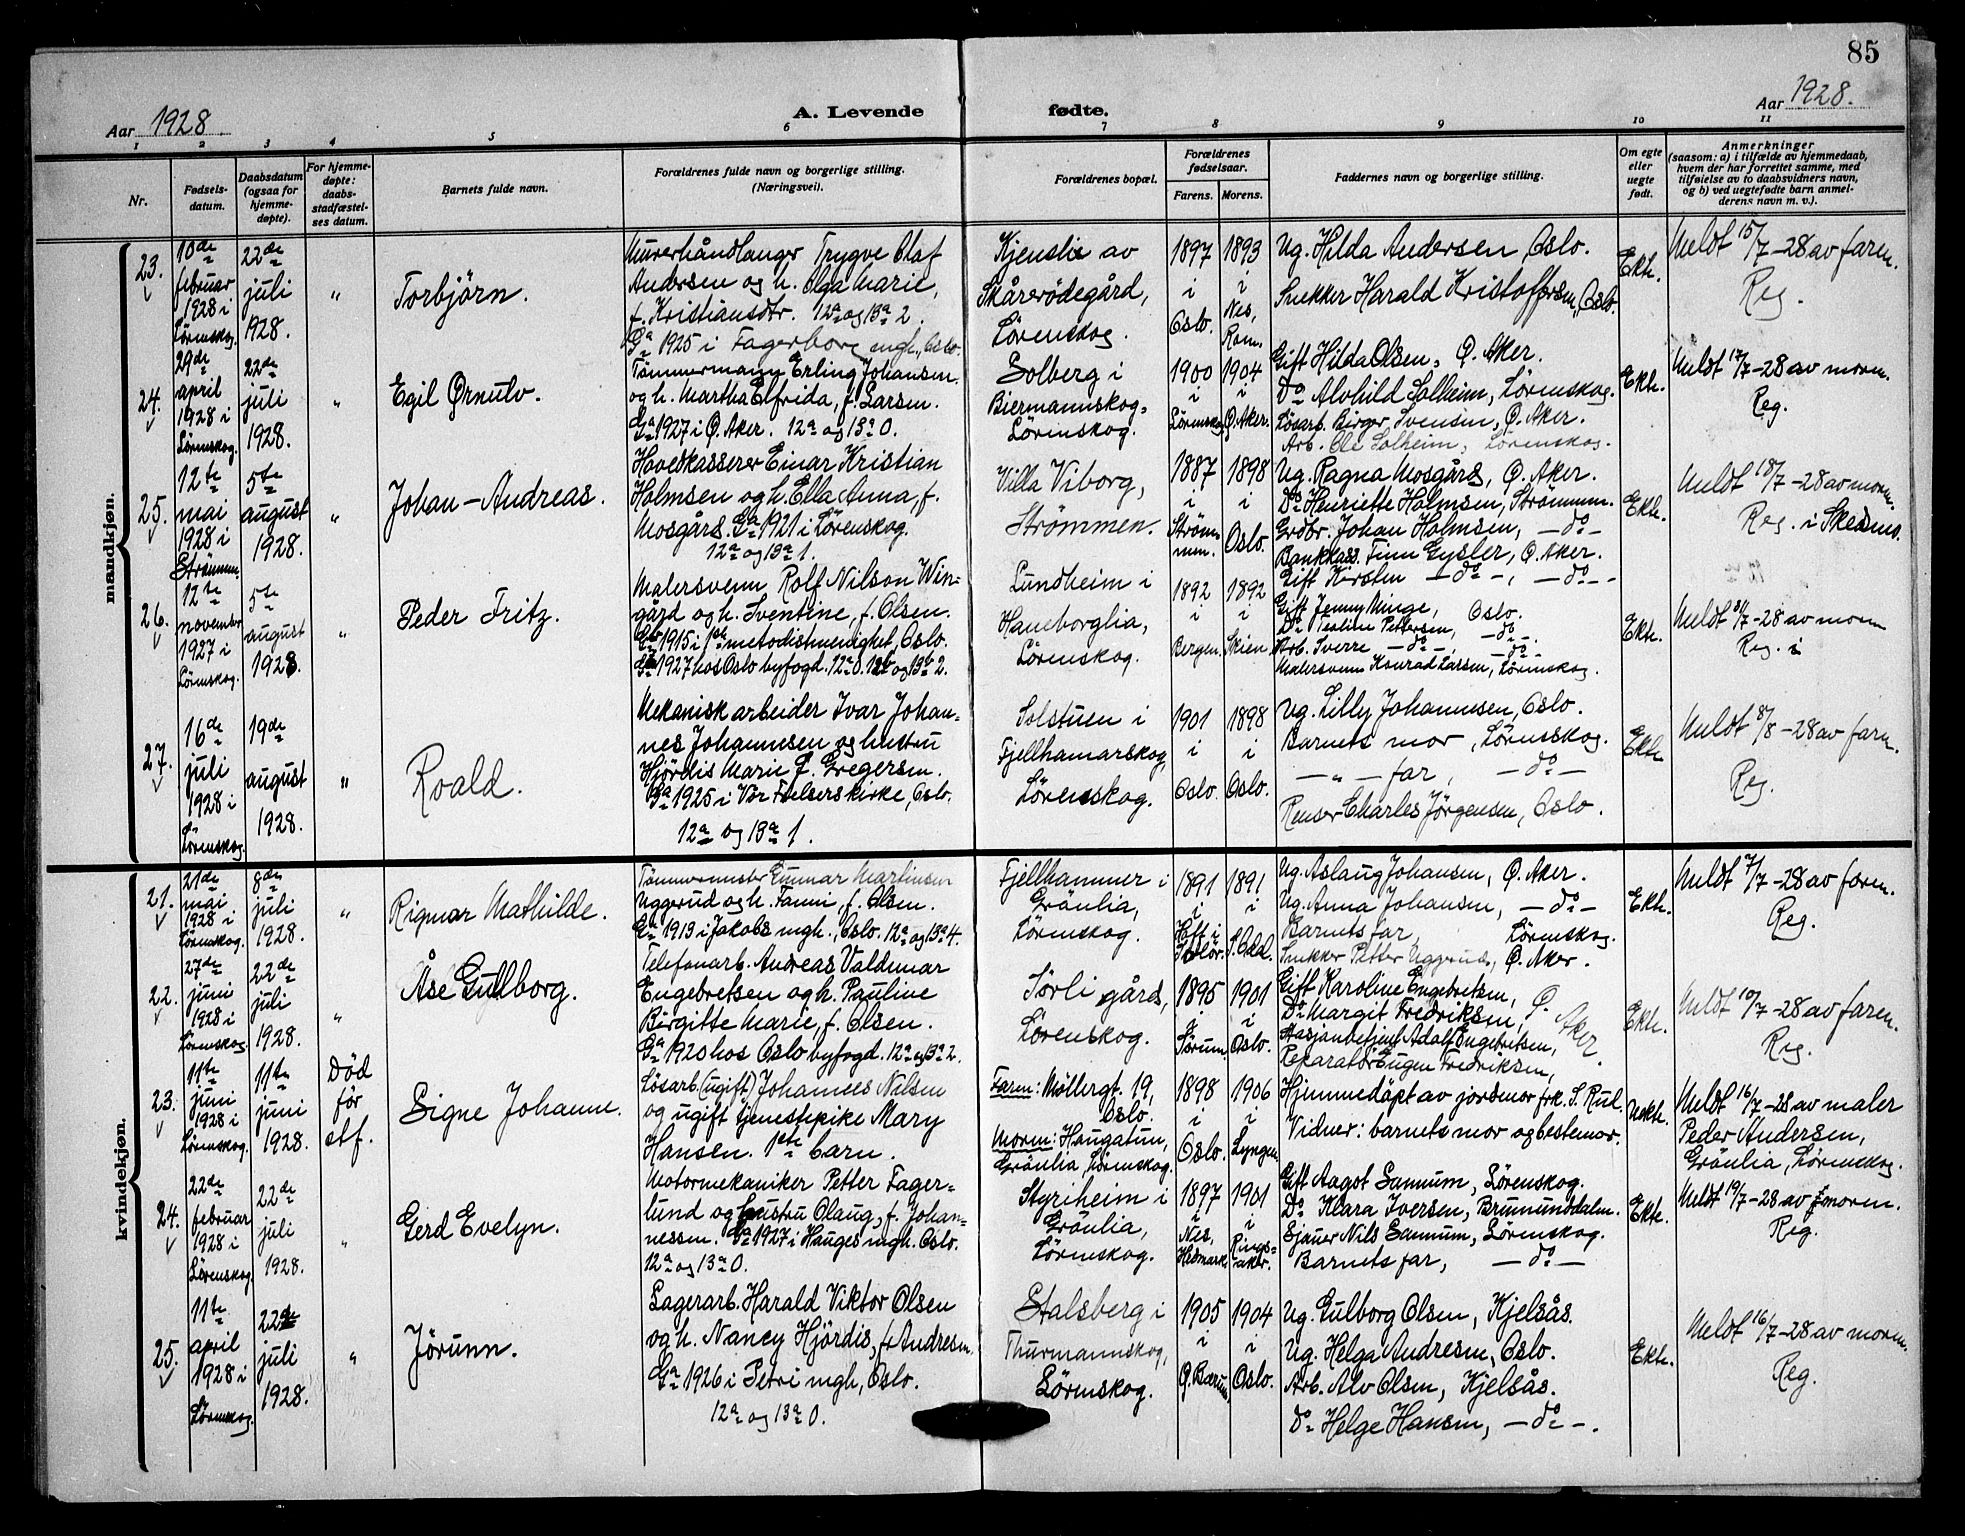 85
Aar 1928.
A. Levende
fødte.
Aar 1928.
1 2 3 4 5 6 7 8 9 10 11
Nr.
Fødsels-
datum.
Daabsdatum
(ogsaa for
hjemme-
døpte).
For hjemme-
døpte:
daabs
stadfæstel-
ses datum.
Barnets fulde navn.
Forældrenes fulde navn og borgerlige stilling.
(Næringsvei).
Forældrenes bopæl.
Forældrenes
fødselsaar.
Farens. Morens.
Faddernes navn og borgerlige stilling.
Om egte
eller
uegte
født.
Anmerkninger
(saasom: a) i tilfælde av hjemmedaab,
hvem der har forrettet samme, med
tilføielse av to daabsvidners navn,
og b) ved uegtefødte barn anmel-
derens navn m. v.).
mandkjøn.
23.
10de
februar
1928 i
Lørenskog.
22de
juli
1928.
"
Torbjörn.
Murerhåndlanger Trygve Olaf
Andersen og h. Olga Marie,
f. Kristiansdtr. 12a og 13a 2.
Ga 1925 i Fagerborg mgh., Oslo.
Kjenslie av
Skårerødegård,
Lörenskog.
1897
i
Oslo.
1893
i
Nes,
Rom.
Ug. Hilda Andersen Oslo.
Snekker Harald Kristoffersen, Oslo.
Ekte.
Meldt 15/7-28 av faren.
Reg.
24.
29de
april
1928 i
Lörenskog.
22de
juli
1928.
"
Egil Ørnulv.
Tömmermann Erling Johansen
og h. Martha Elfrida, f. Larsen.
Ga 1927 i Ø. Aker. 12a og 13a 0.
Solberg i
Biermannskog,
Lörenskog.
1900
i
Lörenskog
1904
i
Ø. Aker.
Gift Hilda Olsen, Ø. Aker.
Do Alvhild Solheim, Lörenskog.
Lösarb. Birger Svensen, Ø. Aker.
Arb. Ole Solheim, Lörenskog.
Ekte.
Meldt 17/7-28 av moren.
Reg.
25.
12te
mai
1928 i
Strömmen.
5te
august
1928.
"
Johan-Andreas.
Hovedkasserer Einar Kristian
Holmsen og h. Ella Anna, f.
Mosgård. Ga 1921 i Lörenskog.
12a og 13a 1.
Villa Viborg,
Strömmen.
1887
i
Ström-
men.
1898
i
Oslo.
Ug. Ragna Mosgård, Ø. Aker.
Do Henriette Holmsen, Strömmen.
Grdbr. Johan Holmsen, — do —
Bankkass. Finn Gysler, Ø. Aker.
Gift Kirsten — do —, — do —
Ekte.
Meldt 18/7-28 av moren.
Reg. i Skedsmo.
26.
12te
november
1927 i
Lörenskog.
5te
august
1928.
"
Peder Fritz.
Malersvenn Rolf Nilson Win-
gård og h. Sventine, f. Olsen.
Gb 1915 i 1ste metodistmenighet, Oslo.
Ga 1927 hos Oslo byfogd. 12a 0. 12b og 13b 2.
Lundheim i
Haneborglia,
Lörenskog.
1892
i
Bergen.
1892
i
Skien.
Gift Jenny Minge, Oslo.
Do Pettersen, — do —.
Arb. Sverre — do —, — do —.
Malersvenn Konrad Larsen, Lörenskog.
Ekte.
Meldt 31/7-28 av moren
Reg. i
27.
16de
juli
1928 i
Lörenskog.
19de
august
1928.
"
Roald.
Mekanisk arbeider Ivar Johan-
nes Johannesen og hustru
Hjördis Marie f. Gregersen.
Ga 1925 i Vår Frelsers kirke, Oslo.
12a og 13a 1.
Solstuen i
Fjellhamarskog,
Lörenskog.
1901
i
Oslo.
1898
i
Oslo.
Ug. Lilly Johannesen, Oslo.
Barnets mor, Lörenskog.
— " — far, — do —
Renser Charles Jörgensen, Oslo.
Ekte
Meldt 8/8-28 av faren.
Reg.
kvindekjøn.
21.
21de
mai
1928 i
Lörenskog.
8de
juli
1928.
"
Rigmor Mathilde.
Tömmermester Gunnar Martinsen
Uggerud og h. Fanni, f. Olsen.
Ga 1913 i Jakobs mgh., Oslo. 12a og 13a 4.
Fjellhammer i
Gränlia,
Lörenskog.
1891
i
1891
i
S. Odal.
Ug. Aslaug Johansen, Ø. Aker.
Ug. Anna Johansen, — do —
Barnets far, Lörenskog.
Snekker Petter Uggerud, Ø. Aker.
Ekte.
Meldt 7/7-28 av faren.
Reg.
22.
27de
juni
1928 i
Lörenskog.
22de
juli
1928.
"
Åse Gulborg.
Telefonarb. Andreas Valdemar
Engebretsen og h. Pauline
Birgitte Marie, f. Olsen.
Ga 1920 hos Oslo byfogd. 12a og 13a 2.
Sörli gård,
Lörenskog.
1895
i
Sörum.
1901
i
Oslo.
Gift Karoline Engebretsen,
Do Margit Fredriksen, Ø. Aker.
Stasjonbetjent Adolf Engebretsen,
Reparatör Eugen Fredriksen,
Ekte.
Meldt 10/7-28 av faren.
Reg.
23.
11te
juni
1928 i
Lörenskog.
11te
juni
1928.
Död
för
stf.
Signe Johanne.
Lösarb. (ugift) Johannes Nilsen
og ugift tjenestepike Mary
Hansen. 1ste barn.
Faren: Möllergt. 19,
Oslo.
Moren: Haugatun,
Grånlia, Lörenskog.
1898
i
Oslo.
1906
i
Lyngen.
Hjemmedöpt av jordmor frk. S. Rud.
Vidner: barnets mor og bestemor.
Uekte.
Meldt 16/7-28 av maler
Peder Andersen,
Grånlia, Lörenskog.
24.
22de
februar
1928 i
Lörenskog.
22de
juli
1928.
"
Gerd Evelyn.
Motormekaniker Petter Fager-
lund og hustru Olaug, f. Johan-
nessen. Ga 1927 i Hauges mgh. Oslo.
12a og 13a 0.
Styriheim i
Grånlia,
Lörenskog.
1897
i
Nes,
Hedmark.
1901
i
Rings-
aker.
Gift Aagot Sannum, Lörenskog.
Do Klara Iversen, Brumunddalen.
Sjauer Nils Sannum, Lörenskog.
Barnets far, — do —
Ekte.
Meldt 19/7-28 av moren.
Reg.
25.
11te
april
1928 i
Lörenskog.
22de
juli
1928.
"
Jörunn.
Lagerarb. Harald Viktor Olsen
og h. Nancy Hjördis, f. Andresen.
Ga 1926 i Petri mgh, Oslo.
12a og 13a 0.
Stalsberg i
Thurmannskog,
Lörenskog.
1905
i
Ø. Bærum
1904
i
Oslo.
Ug. Gulborg Olsen, Kjelsås.
Ug. Helga Andresen, Oslo.
Arb. Alv Olsen, Kjelsås.
Do Helge Hansen, — do —.
Ekte.
Meldt 16/7-28 av moren.
Reg.